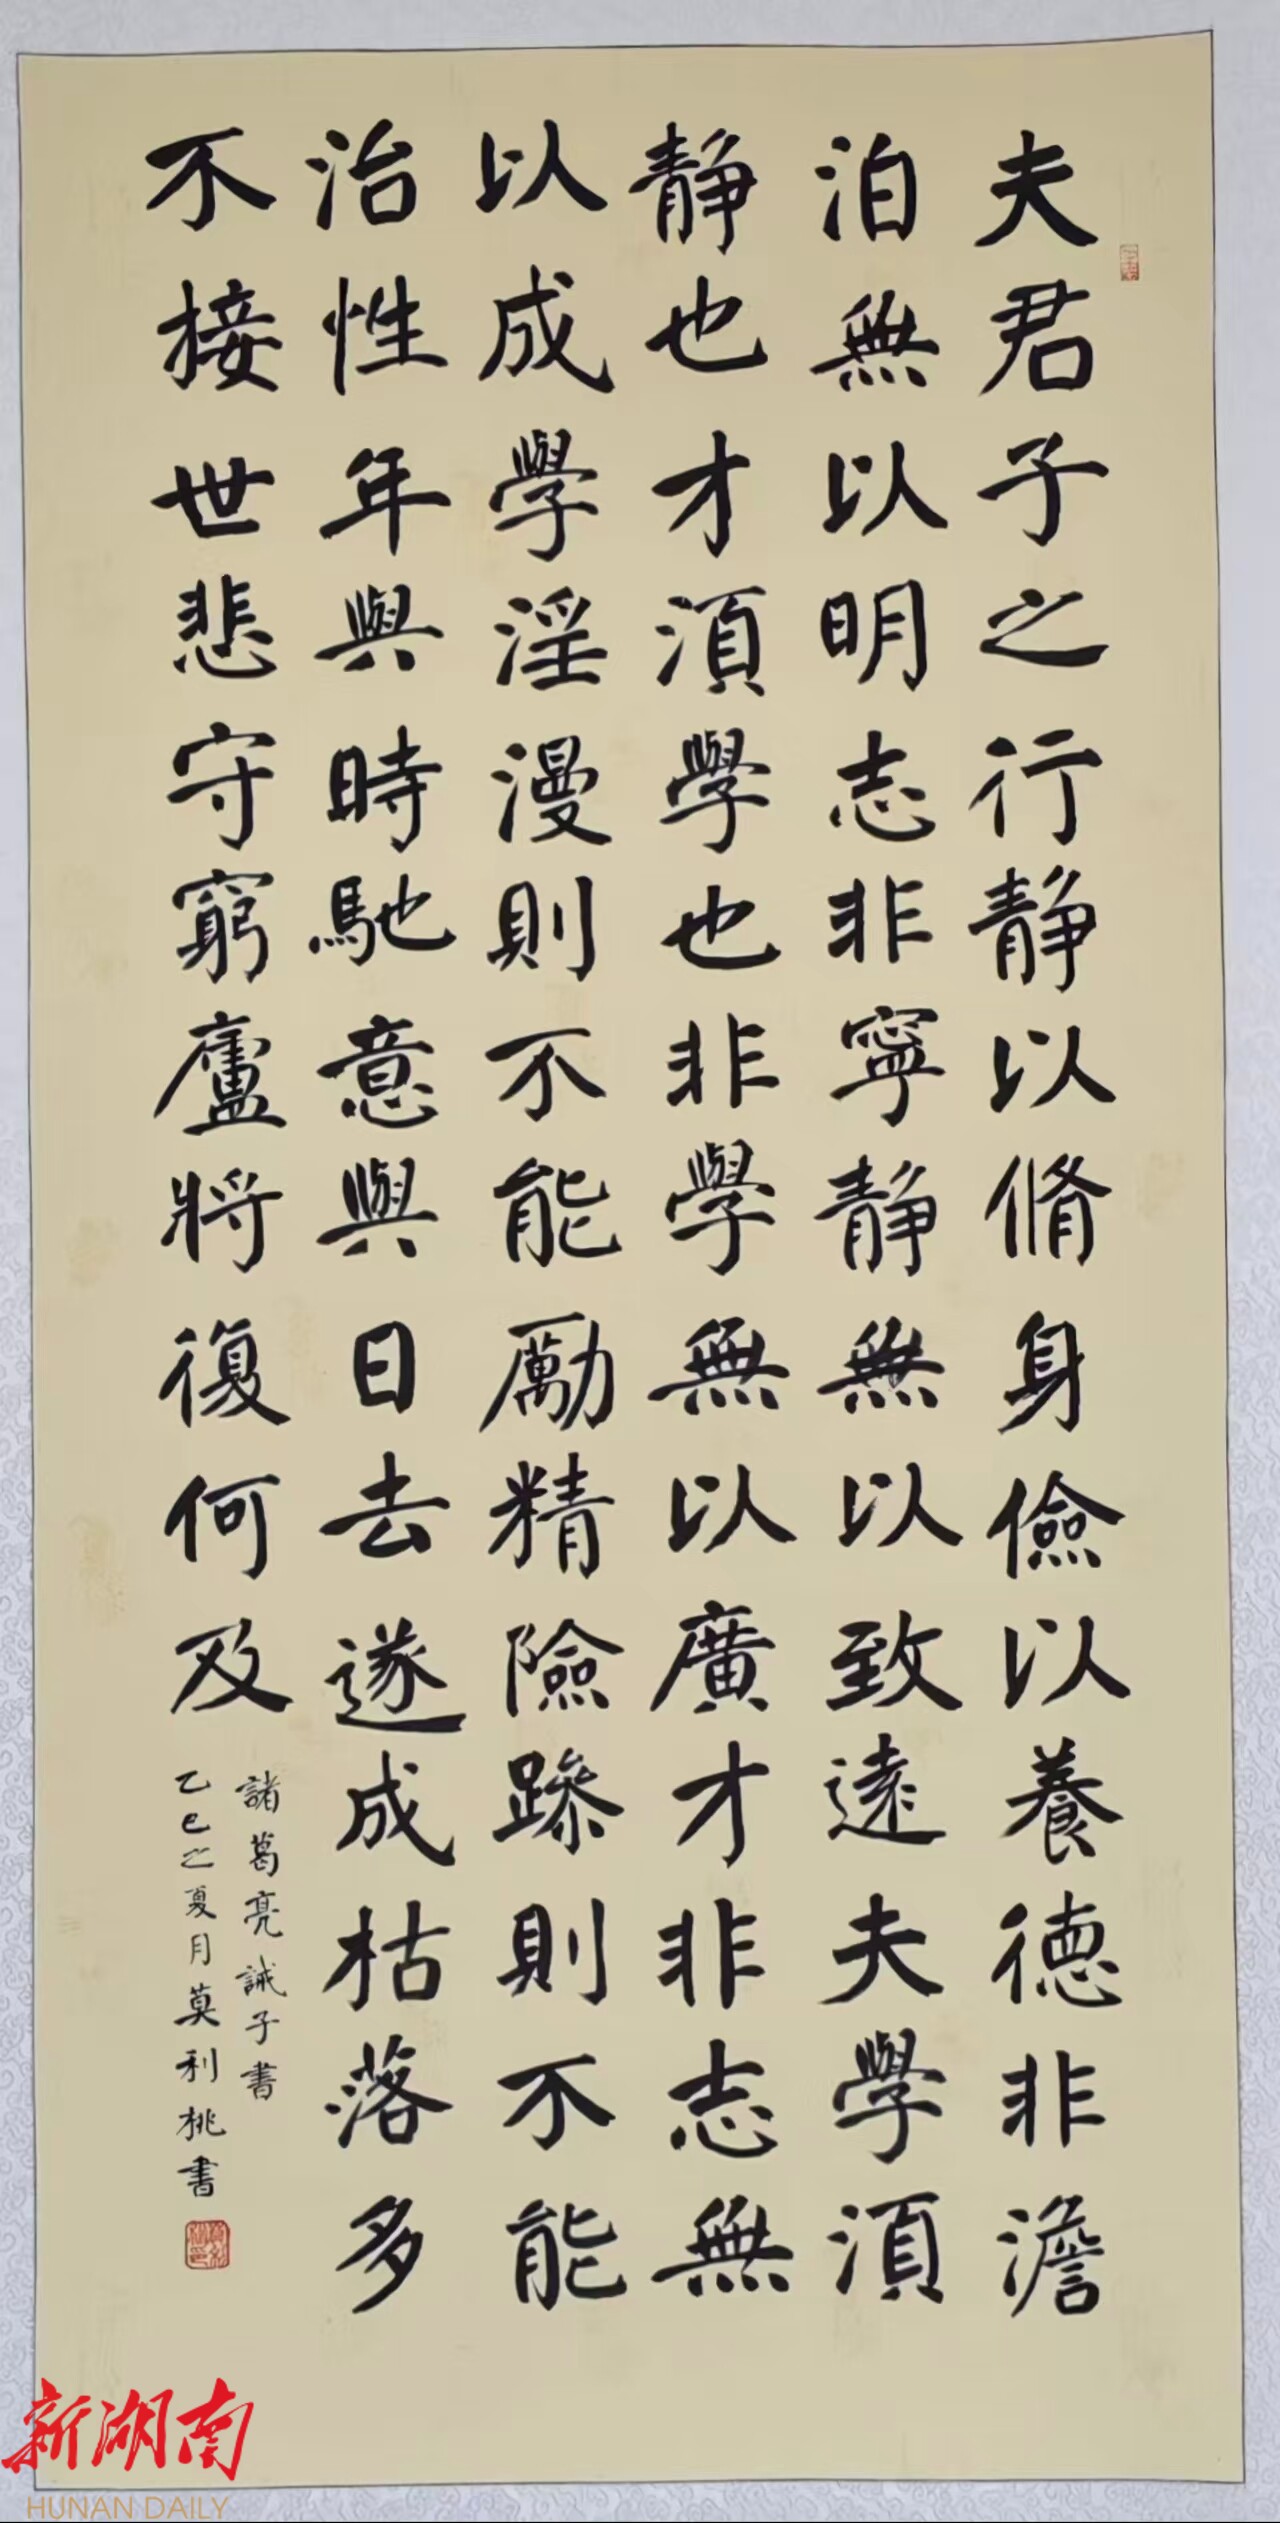 夫君子之行静以脩身儉以養德非澹
泊無以明志非寧静無以致遠夫學湏
静也才湏學也非學無以廣才非志無
以成學淫漫則不能勵精險躁則不能
治性年與時馳意與日去遂成枯落多
不接世悲守窮廬將復何及
諸葛亮誡子書
乙巳之夏月莫利桃書
新湖南
HUNAN DAILY